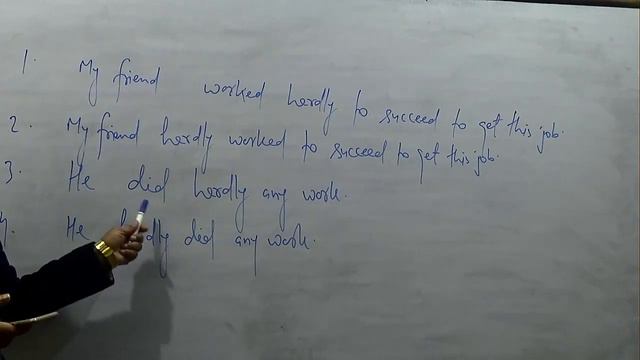 1. My friend worked hardly to succeed to get this job.
2. My friend hardly worked to succeed to get this job.
3. He did hardly any work.
4. He hardly did any work.